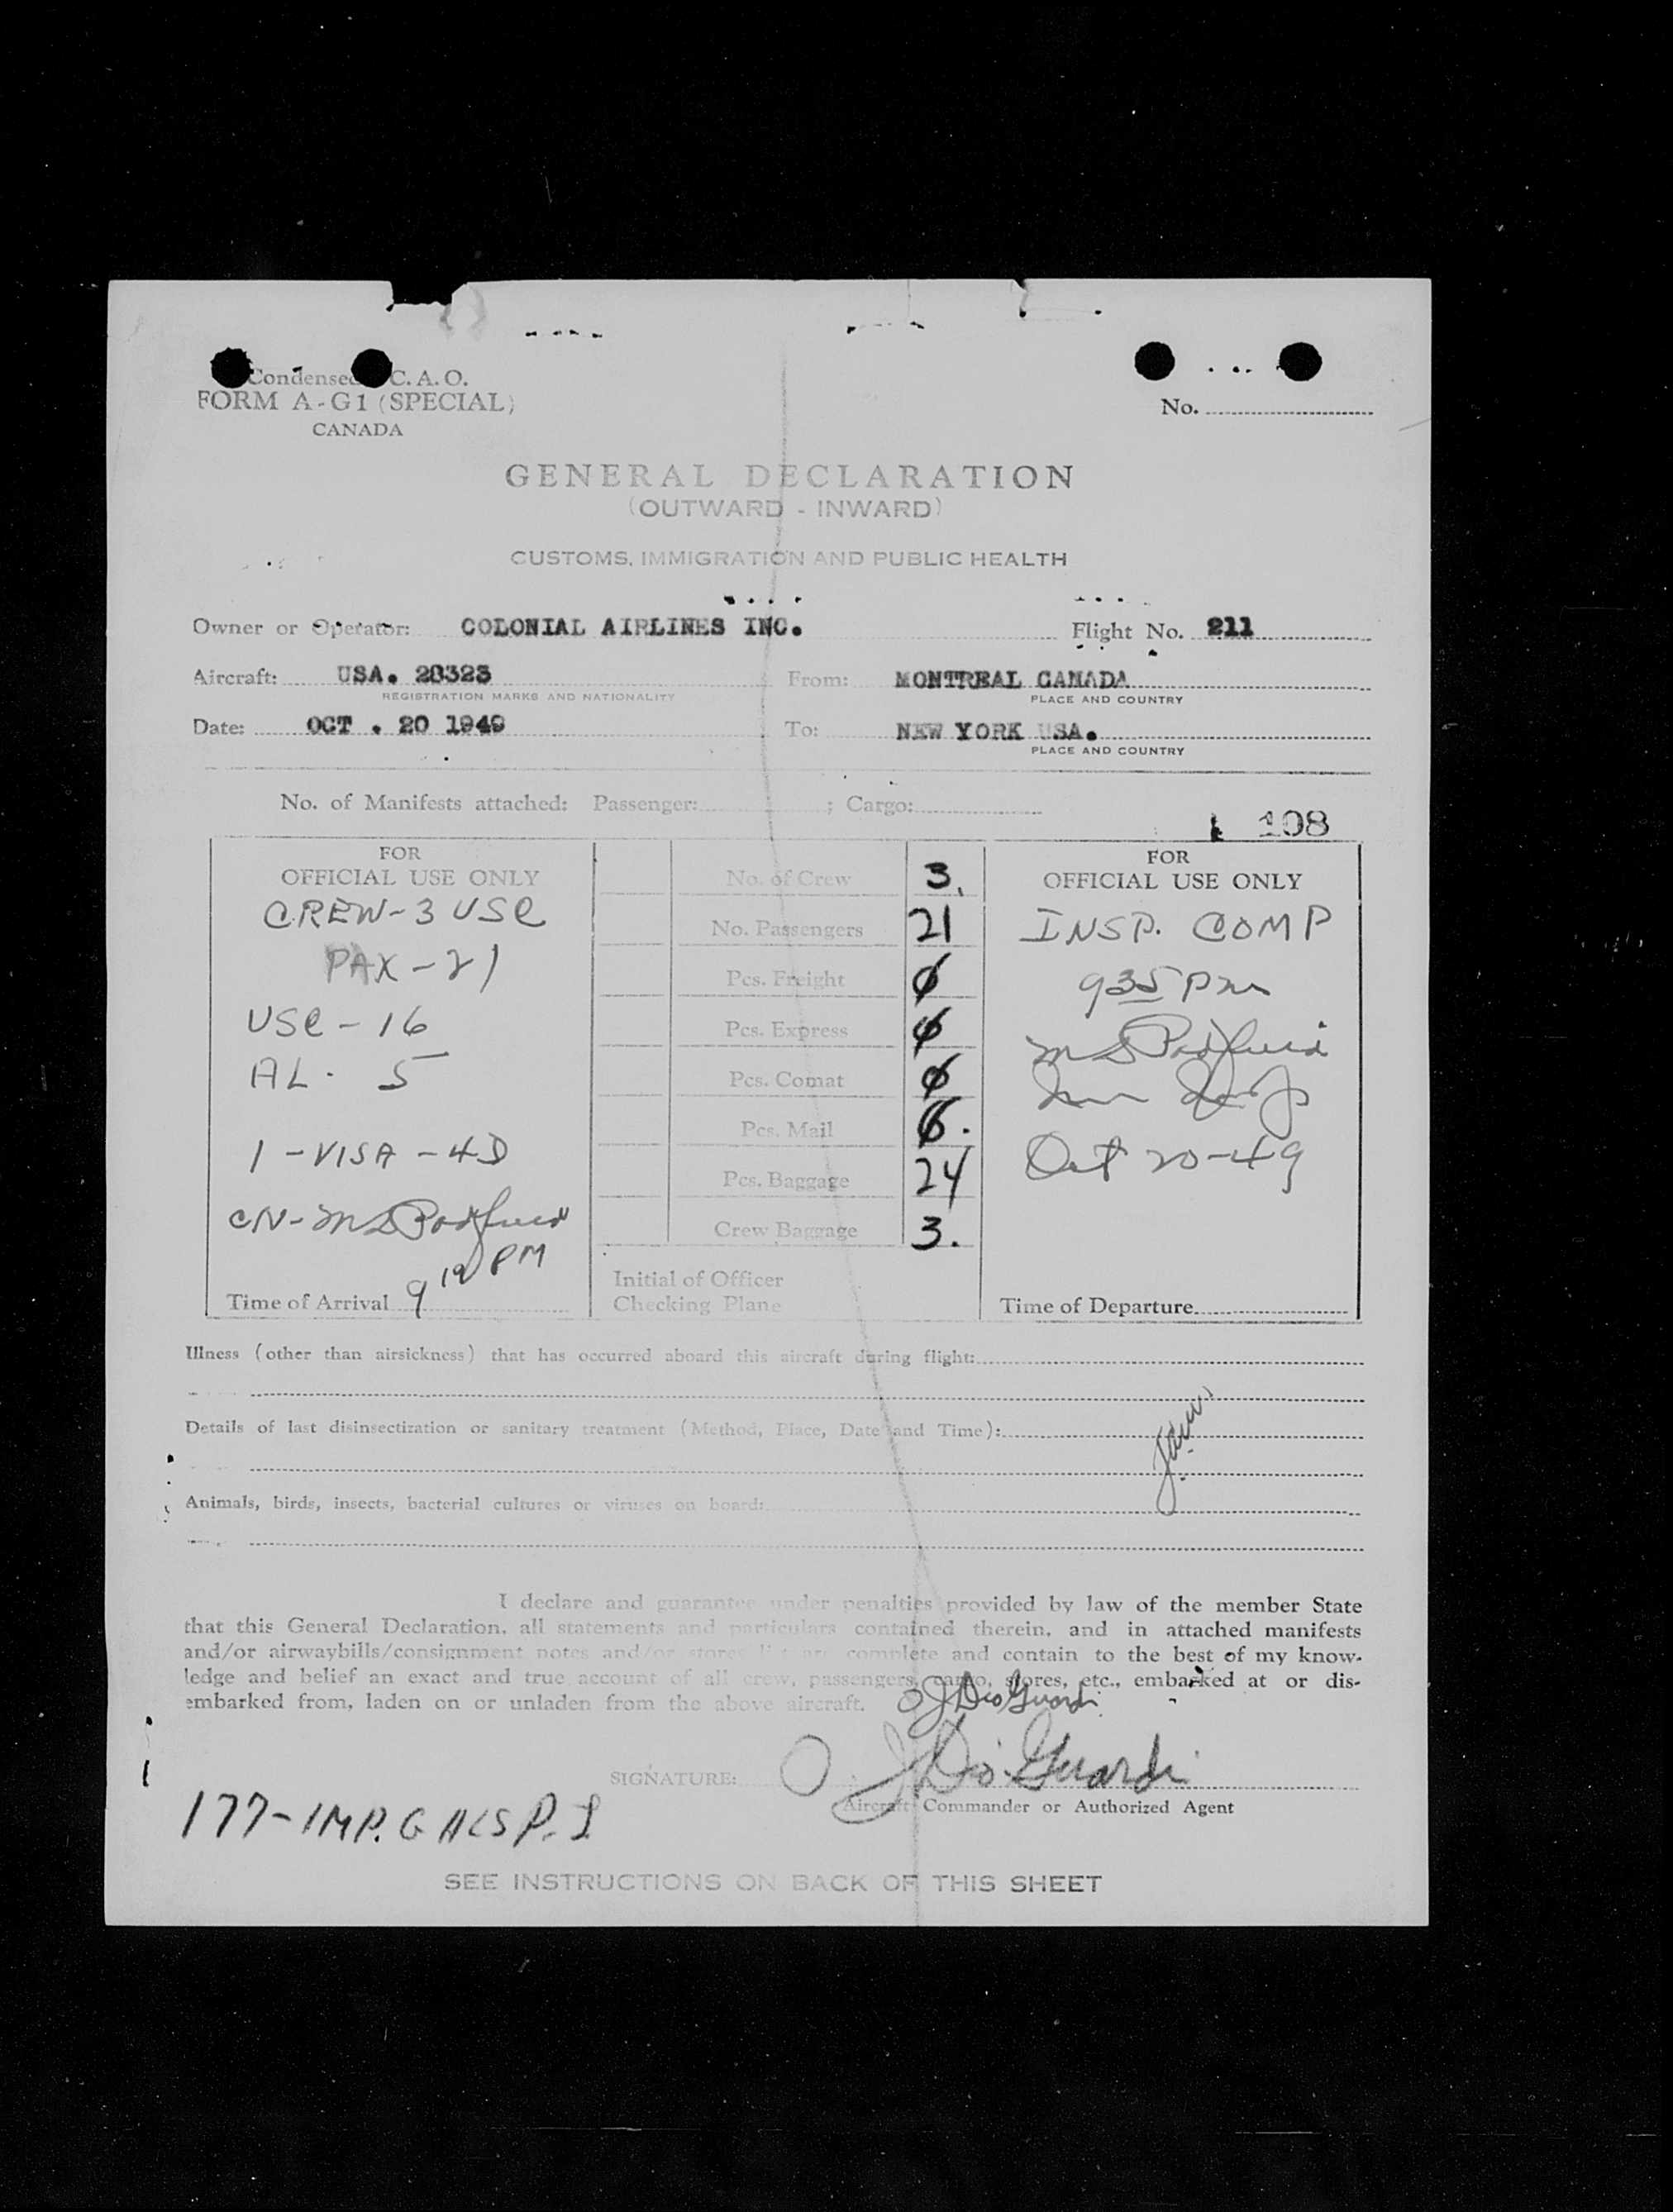 Condensed C. A. O.
FORM A-G1 (SPECIAL)
CANADA
No.
GENERAL DECLARATION
(OUTWARD - INWARD)
CUSTOMS, IMMIGRATION AND PUBLIC HEALTH
Owner or Operator: COLONIAL AIRLINES INC. Flight No. 211
Aircraft: USA. 28323 From: MONTREAL CANADA
REGISTRATION MARKS AND NATIONALITY PLACE AND COUNTRY
Date: OCT . 20 1949 To: NEW YORK USA.
PLACE AND COUNTRY
No. of Manifests attached: Passenger: ; Cargo:
108
FOR
OFFICIAL USE ONLY
CREW-3 USC
PAX-21
USC-16
AL. 5
1-VISA-4D
CN-
Time of Arrival 9 12 PM
No. of Crew 3.
No. Passengers 21
Pcs. Freight 0
Pcs. Express 0
Pcs. Comat 0
Pcs. Mail 6.
Pcs. Baggage 24
Crew Baggage 3.
Initial of Officer
Checking Plane
FOR
OFFICIAL USE ONLY
INSP. COMP
935 PM
Oct 20-49
Time of Departure
Illness (other than airsickness) that has occurred aboard this aircraft during flight:
Details of last disinsectization or sanitary treatment (Method, Place, Date and Time):
Animals, birds, insects, bacterial cultures or viruses on board:
I declare and guarantee under penalties provided by law of the member State
that this General Declaration, all statements and particulars contained therein, and in attached manifests
and/or airwaybills/consignment notes and/or stores list are complete and contain to the best of my know-
ledge and belief an exact and true account of all crew, passengers, cargo, stores, etc., embarked at or dis-
embarked from, laden on or unladen from the above aircraft. O J DioGuardi
SIGNATURE: O J DioGuardi
Aircraft Commander or Authorized Agent
177-IMP.G
SEE INSTRUCTIONS ON BACK OF THIS SHEET